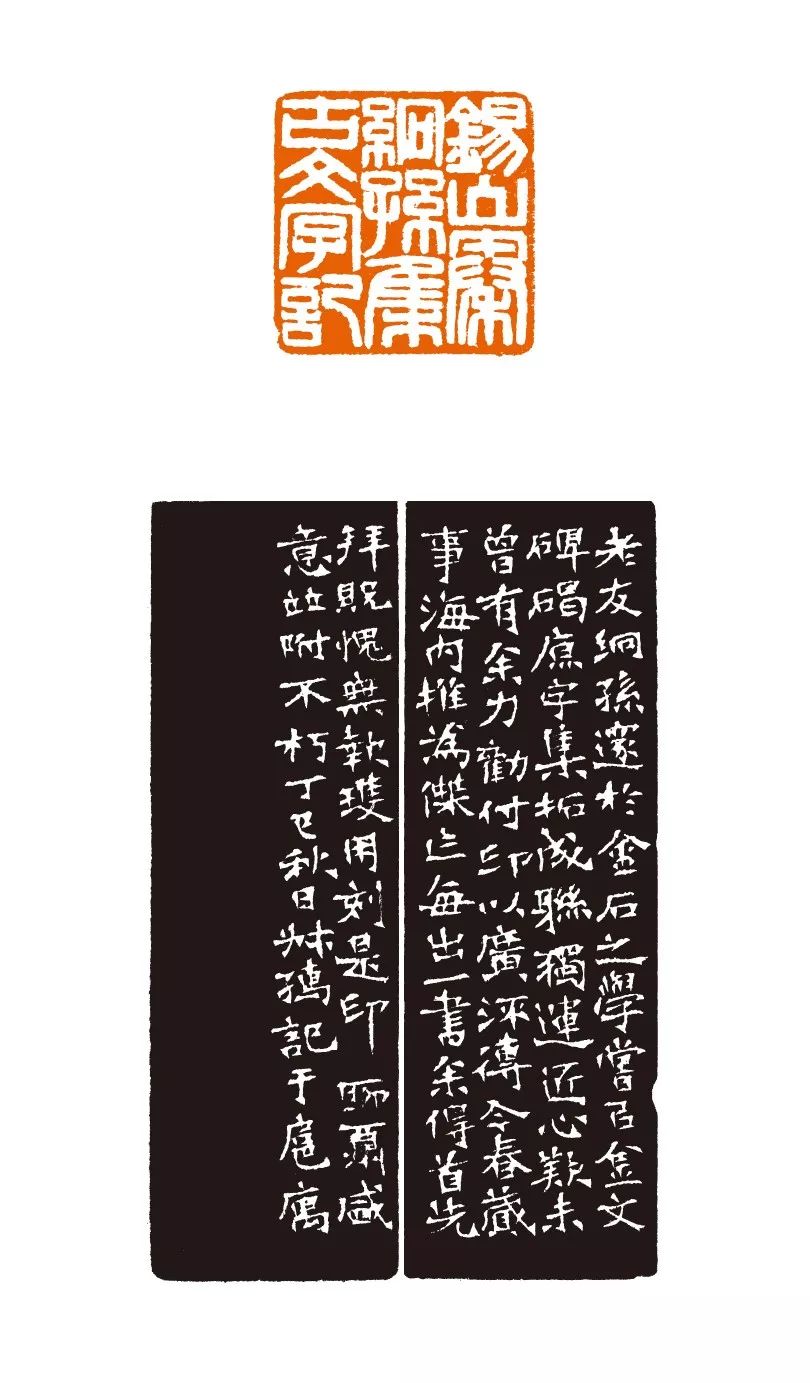 錫山秦
絅孫集
古文字記
老友絅孫邃於金石之學嘗㠯金文
碑碣原字集拓成聯獨運匠心歎未
曾有余力勸付印以廣流傳今春蕆
事海内推爲傑乍每出一書余得首先
拜貺愧無報瓊用刻是印聊感
意竝附不朽丁巳秋日尗孺記于扈寓